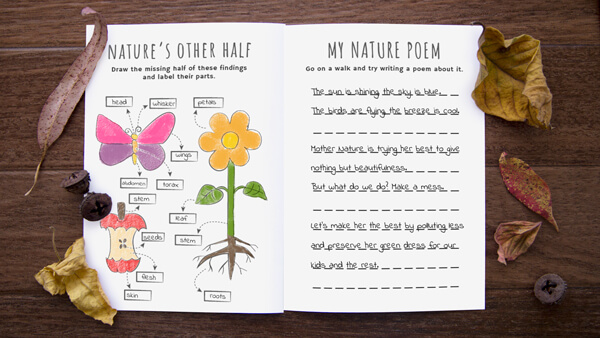 NATURE'S OTHER HALF
Draw the missing half of these findings
and label their parts.
head
whisker
petals
wings
abdomen
torax
stem
leaf
seeds
stem
flesh
skin
roots
MY NATURE POEM
Go on a walk and try writing a poem about it.
The sun is shining the sky is blue.
The birds are flying the breeze is cool
Mother Nature is trying her best to give
nothing but beautifulness.
But what do we do? Make a mess.
Let's make her the best by polluting less
and preserve her green dress for our
kids and the rest.